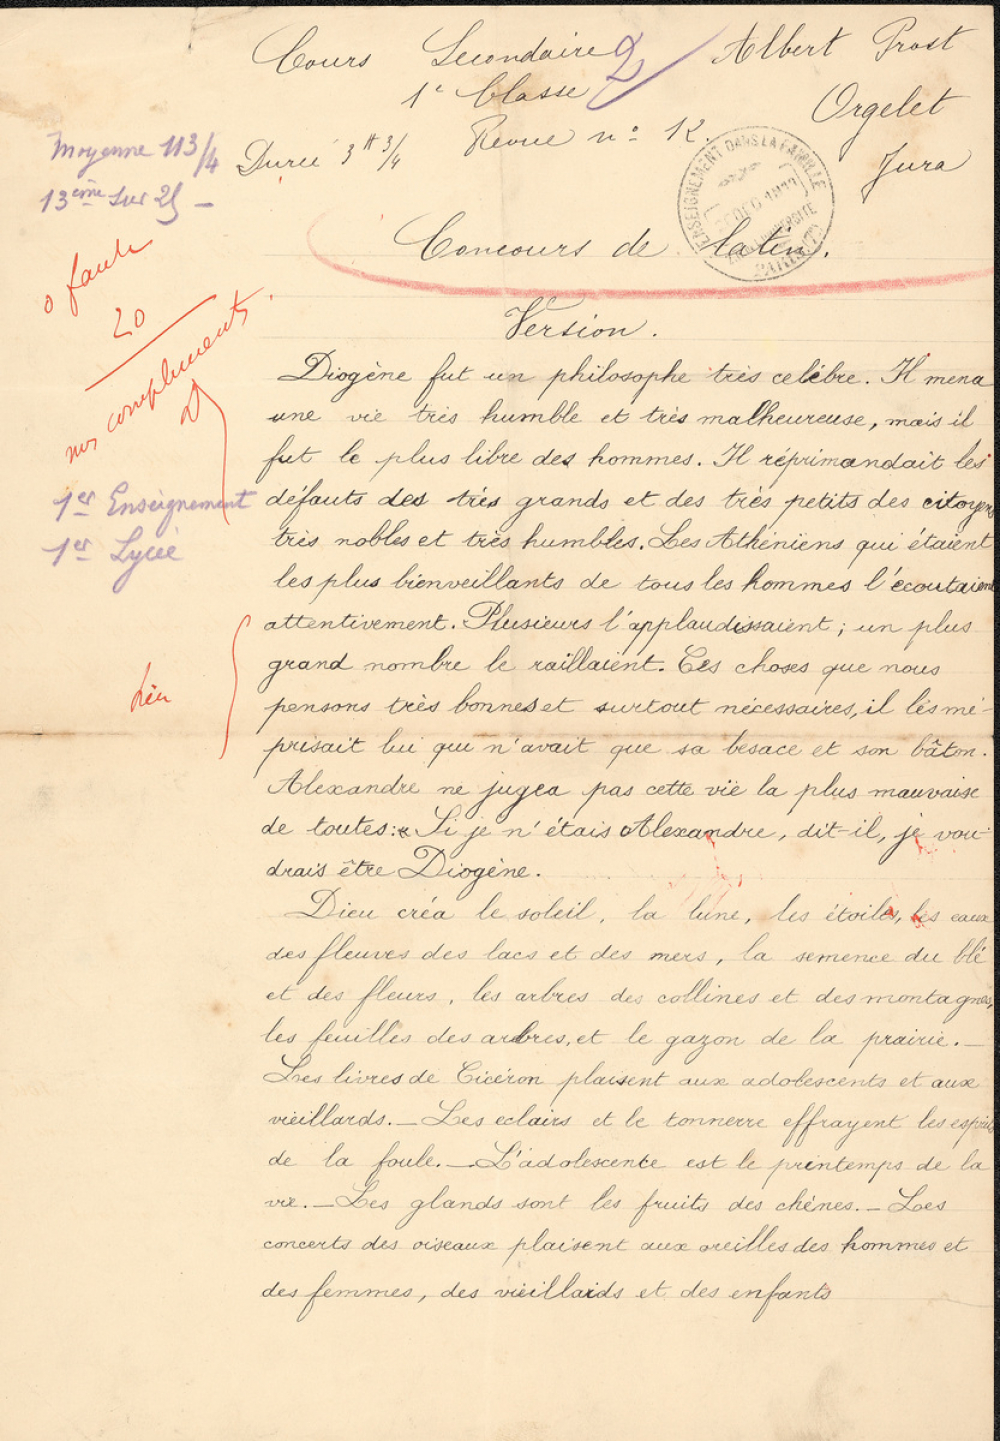 Cours Secondaire Albert Prost
1e Classe Orgelet
Revue n° 12. Jura
Moyenne 11 3/4
Durée 3H 3/4
13ème sur 25 -
ENSEIGNEMENT DANS LA FAMILLE
Concours de latin.
0 faute
20
nos compliments
Version.
Diogène fut un philosophe très celèbre. Il mena
une vie très humble et très malheureuse, mais il
fut le plus libre des hommes. Il réprimandait les
défauts des très grands et des très petits des citoyens
1er Enseignement
très nobles et très humbles. Les Athéniens qui étaient
1er Lycée
les plus bienveillants de tous les hommes l'écoutaient
attentivement. Plusieurs l'applaudissaient ; un plus
grand nombre le raillaient. Ces choses que nous
bien
pensons très bonnes et surtout nécessaires, il les mé-
prisait lui qui n'avait que sa besace et son bâton.
Alexandre ne jugea pas cette vie la plus mauvaise
de toutes: « Si je n'étais Alexandre, dit-il, je vou-
drais être Diogène.
Dieu créa le soleil, la lune, les étoiles, les eaux
des fleuves des lacs et des mers, la semence du blé
et des fleurs, les arbres des collines et des montagnes,
les feuilles des arbres, et le gazon de la prairie. _
Les livres de Cicéron plaisent aux adolescents et aux
vieillards. _ Les eclairs et le tonnerre effrayent les esprits
de la foule. _ L'adolescence est le printemps de la
vie. _ Les glands sont les fruits des chênes. _ Les
concerts des oiseaux plaisent aux oreilles des hommes et
des femmes, des vieillards et des enfants